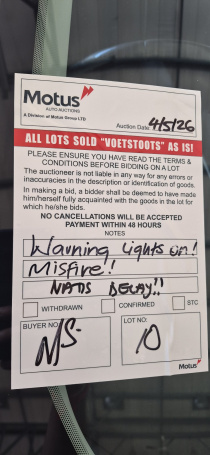 Motus
AUTO AUCTIONS
A Division of Motus Group LTD
Auction Date: 4/5/26
ALL LOTS SOLD "VOETSTOOTS" AS IS!
PLEASE ENSURE YOU HAVE READ THE TERMS &
CONDITIONS BEFORE BIDDING ON A LOT
The auctioneer is not liable in any way for any errors or
inaccuracies in the description or identification of goods.
In making a bid, a bidder shall be deemed to have made
him/herself fully acquainted with the goods in the lot for
which he/she bids.
NO CANCELLATIONS WILL BE ACCEPTED
PAYMENT WITHIN 48 HOURS
NOTES
Warning Lights on!
Misfire!
NATIS DELAY!!
WITHDRAWN CONFIRMED STC
BUYER NO: LOT NO:
N/S 10
Motus